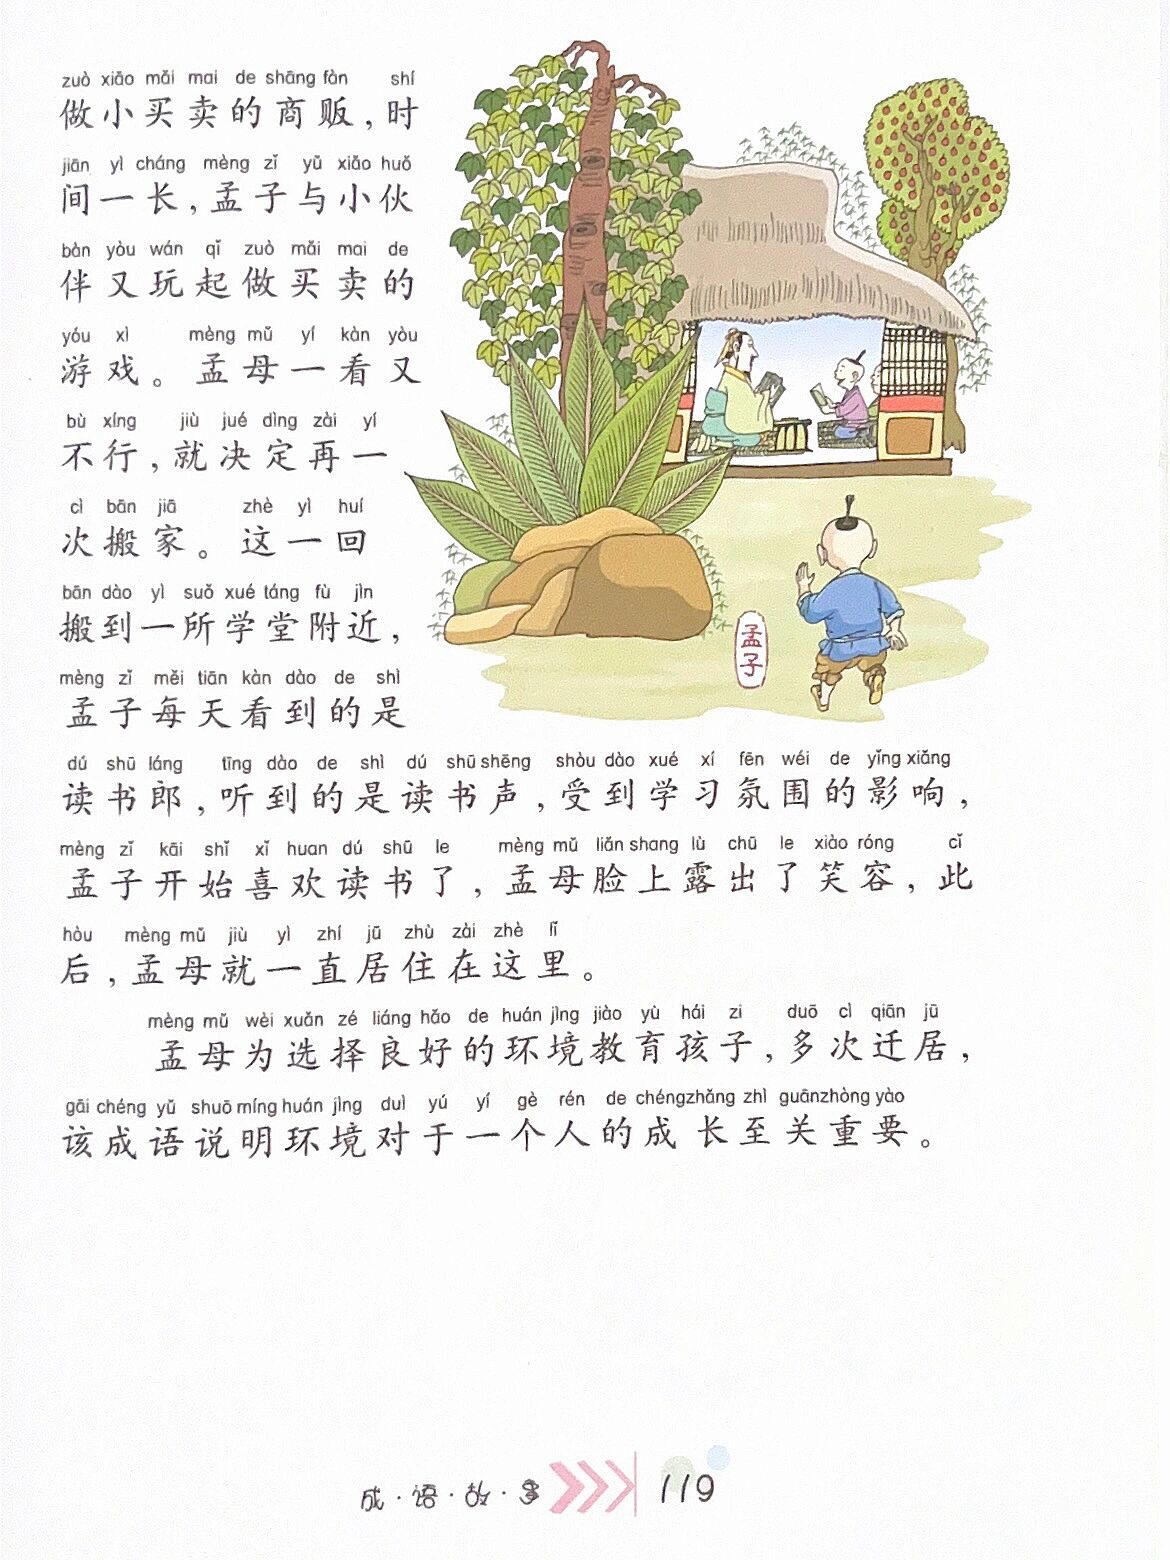 zuò xiǎo mǎi mai de shāng fàn shí
做小买卖的商贩，时
jiān yì cháng mèng zǐ yǔ xiǎo huǒ
间一长，孟子与小伙
bàn yòu wán qǐ zuò mǎi mai de
伴又玩起做买卖的
yóu xì mèng mǔ yí kàn yòu
游戏。孟母一看又
bù xíng jiù jué dìng zài yí
不行，就决定再一
cì bān jiā zhè yì huí
次搬家。这一回
bān dào yì suǒ xué táng fù jìn
搬到一所学堂附近，
mèng zǐ měi tiān kàn dào de shì
孟子每天看到的是
dú shū láng tīng dào de shì dú shū shēng shòu dào xué xí fēn wéi de yǐng xiǎng
读书郎，听到的是读书声，受到学习氛围的影响，
mèng zǐ kāi shǐ xǐ huan dú shū le mèng mǔ liǎn shang lù chū le xiào róng cǐ
孟子开始喜欢读书了，孟母脸上露出了笑容，此
hòu mèng mǔ jiù yì zhí jū zhù zài zhè lǐ
后，孟母就一直居住在这里。
mèng mǔ wèi xuǎn zé liáng hǎo de huán jìng jiào yù hái zi duō cì qiān jū
孟母为选择良好的环境教育孩子，多次迁居，
gāi chéng yǔ shuō míng huán jìng duì yú yí gè rén de chéngzhǎng zhì guānzhòng yào
该成语说明环境对于一个人的成长至关重要。
孟子
成·语·故·事 119